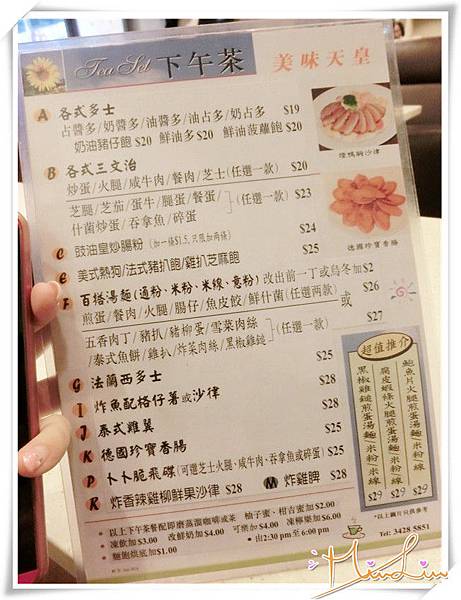 Tea Set 下午茶 美味天皇
A 各式多士
占醬多/奶醬多/油醬多/油占多/奶占多 $19
奶油豬仔飽 $20 鮮油多$20 鮮油菠蘿飽 $20
煙鴨胸沙律
B 各式三文治
炒蛋/火腿/咸牛肉/餐肉/芝士(任選一款) $20
芝腿/芝茄/蛋牛/腿蛋/餐蛋/
什菌炒蛋/吞拿魚/碎蛋 (任選一款) $23
C 豉油皇炒腸粉 (加一條$1.5,只限加兩條) $24
德國珍寶香腸
e 美式熱狗/法式豬扒飽/雞扒芝麻飽 $25
F 百搭湯麵(通粉、米粉、米線、意粉)改出前一丁或烏冬加$2
煎蛋/餐肉/火腿/腸仔/魚皮餃/鮮什菌(任選兩款) $26 或
五香肉丁/豬扒/豬柳蛋/雪菜肉絲
/泰式魚餅/雞扒/炸菜肉絲/黑椒雞鎚 (任選一款) $27
G 法蘭西多士 $25
I 炸魚配格仔薯或沙律 $28
J 泰式雞翼 $25
K 德國珍寶香腸 $28
P 卜卜脆飛碟(可選芝士火腿、咸牛肉、吞拿魚或碎蛋) $25
R 炸香辣雞柳鮮果沙律 $28 M 炸雞髀 $28
超值推介
鮑魚片火腿煎蛋湯麵/米粉/米線 $29
腐皮蝦條火腿煎蛋湯麵/米粉/米線 $29
黑椒雞鎚煎蛋湯麵/米粉/米線 $29
*以上圖片只供參考
• 以上下午茶餐配即磨蒸溜咖啡或茶 柚子蜜、柑吉蜜加$2.00
• 凍飲加$3.00 改鮮奶加$4.00 可樂加$4.00 凍檸樂加$6.00
• 麵飽烘底加$1.00 • 由2:30 pm 至 6:00 pm
Tel: 3428 5851
MiuLiu